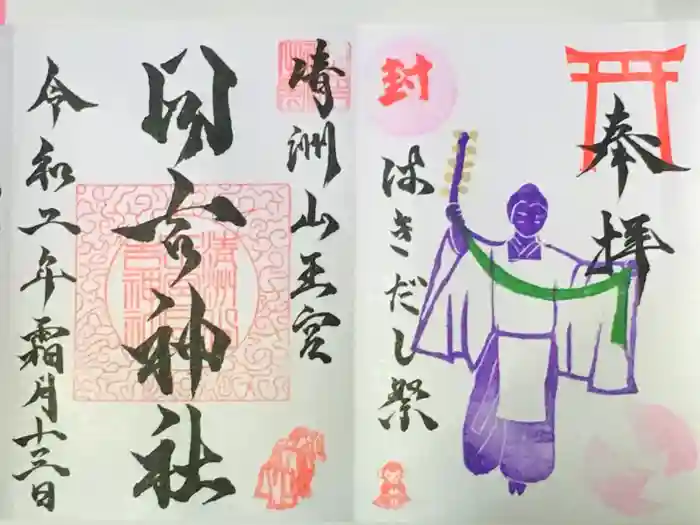 奉拝
封
はきだし祭
清洲山王宮
日吉神社
令和二年霜月十三日